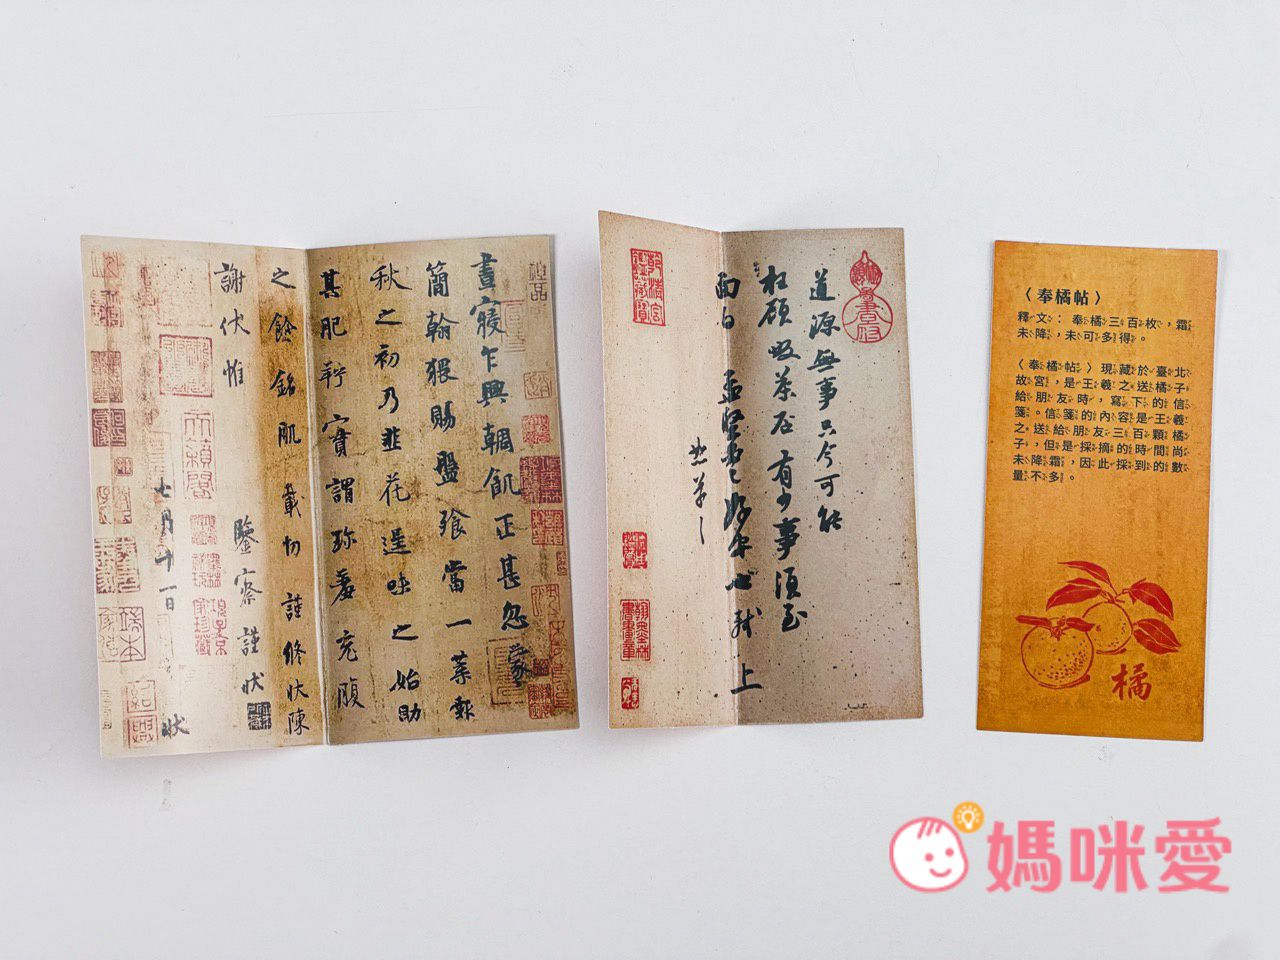 晝寢乍興輖飢正甚忽蒙
簡翰猥賜盤飱當一葉報
秋之初乃韭花逞味之始助
其肥羜實謂珍羞充腹
之餘銘肌載切謹修狀陳
謝伏惟
鑒察謹狀
七月十一日 狀
道源無事只今可能
枉顧啜茶否有少事須至
面白 孟堅必已好安也軾 上
恕草草
乾清宮鑑藏寶
〈奉橘帖〉
釋文：奉橘三百枚，霜
未降，未可多得。
〈奉橘帖〉現藏於臺北
故宮，是王羲之送橘子
給朋友時，寫下的信
箋。信箋的內容是王羲
之送給朋友三百顆橘
子，但是採摘的時間尚
未降霜，因此採到的數
量不多。
橘
媽咪愛